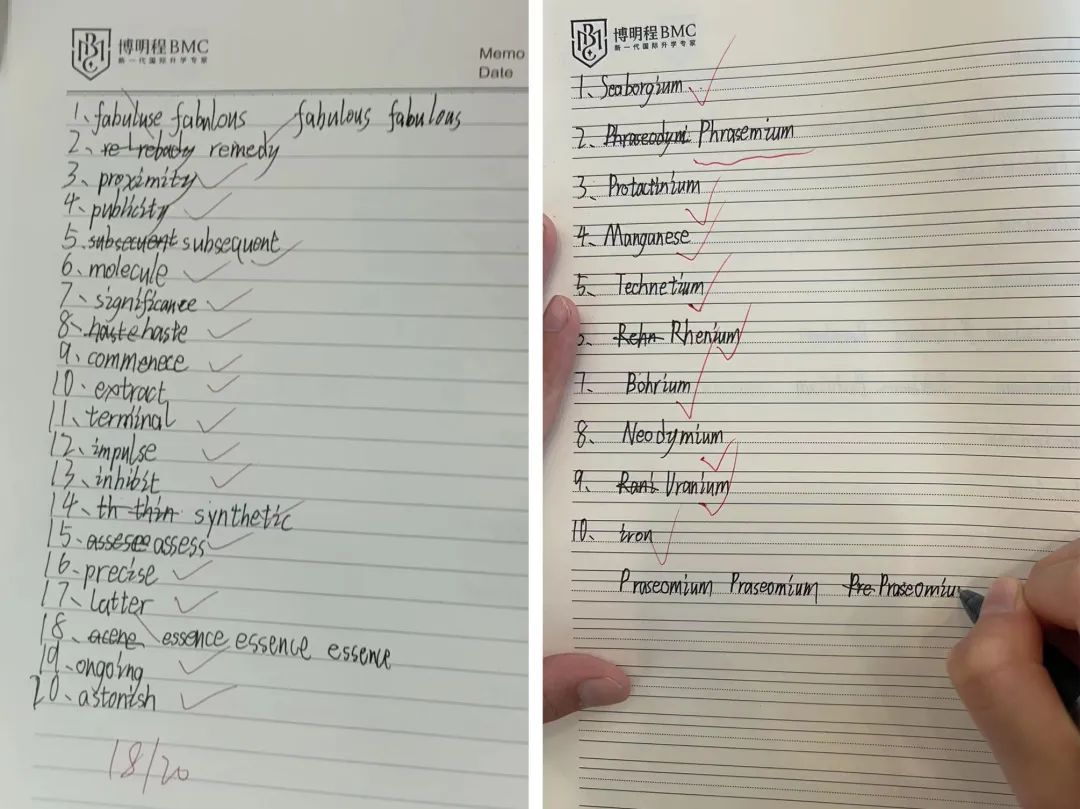 博明程BMC
新一代国际升学专家
Memo
Date
1、fabuluse fabulous fabulous fabulous
2、re rebady remedy
3、proximity
4、publicity
5.subsecuent subsequent
6、molecule
7、significance
8、haiste haste
9、commenece
10、extract
11、terminal
12、impulse
13、inhibit
14、th thin synthetic
15、assese assess
16、precise
17、latter
18、acene essence essence essence
19、ongoing
20、astonish
18/20
博明程BMC
新一代国际升学专家
1、Seaborgium
2、Phraseodymi Phrasemium
3、Protactinium
4、Manganese
5、Technetium
Rehn Rhenium
7、Bohrium
8、Neodymium
9、Rani Uranium
10、iron
Praseomium Praseomium Pre Praseomiu